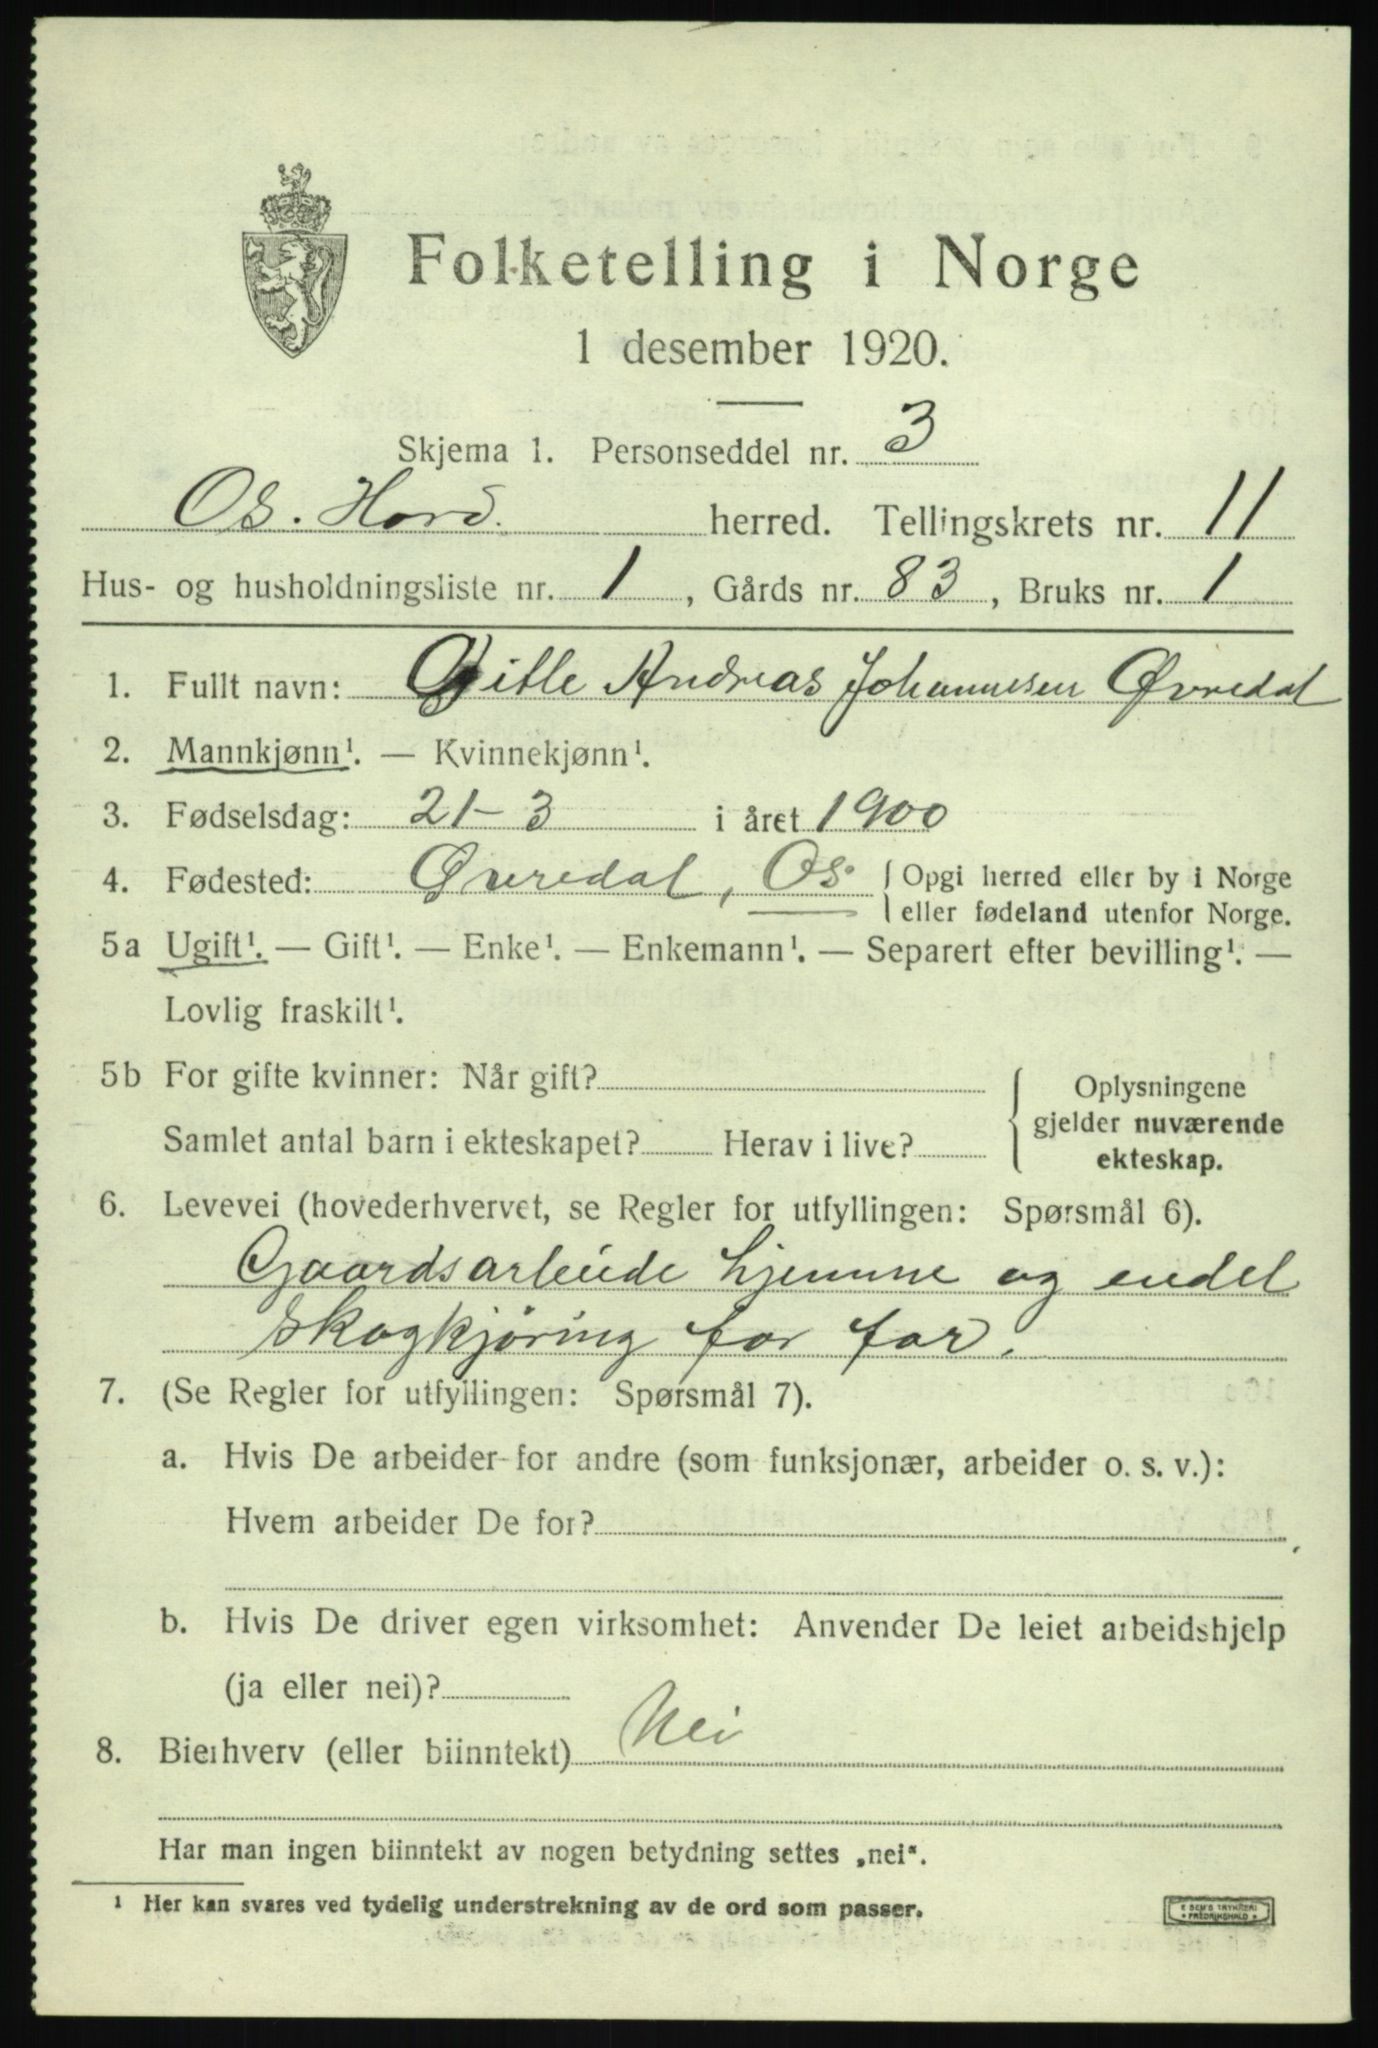 Folketelling i Norge
1 desember 1920.
Skjema 1. Personseddel nr. 3
Os. Hord. herred. Tellingskrets nr. 11
Hus- og husholdningsliste nr. 1, Gårds nr. 83, Bruks nr. 1
1. Fullt navn: Gitle Andreas Johannesen Øvredal
2. Mannkjønn¹. — Kvinnekjønn¹.
3. Fødselsdag: 21-3 i året 1900
4. Fødested: Øvredal, Os. { Opgi herred eller by i Norge
eller fødeland utenfor Norge.
5a Ugift¹. — Gift¹. — Enke¹. — Enkemann¹. — Separert efter bevilling¹. —
Lovlig fraskilt¹.
5b For gifte kvinner: Når gift?
Samlet antal barn i ekteskapet? Herav i live?
Oplysningene
gjelder nuværende
ekteskap.
6. Levevei (hovederhvervet, se Regler for utfyllingen: Spørsmål 6).
Gaardsarbeide hjemme og endel
skogkjøring for far.
7. (Se Regler for utfyllingen: Spørsmål 7).
a. Hvis De arbeider for andre (som funksjonær, arbeider o. s. v.):
Hvem arbeider De for?
b. Hvis De driver egen virksomhet: Anvender De leiet arbeidshjelp
(ja eller nei)?
8. Bierhverv (eller biinntekt) Nei
Har man ingen biinntekt av nogen betydning settes „nei“.
¹ Her kan svares ved tydelig understrekning av de ord som passer.